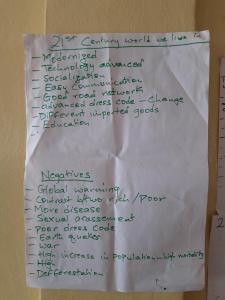 21st Century world we live in
- Modernized
- Technology advanced
- Socialization
- Easy communication
- Good road network
- advanced dress code - Change
- Different imported goods
- Education
Negatives
- Global warming
- Contrast btwo rich / Poor
- More disease
- Sexual arassement
- poor dress code
- Earth quakes
- War
- High increase in Population - high mortality
- High
- Defforestation